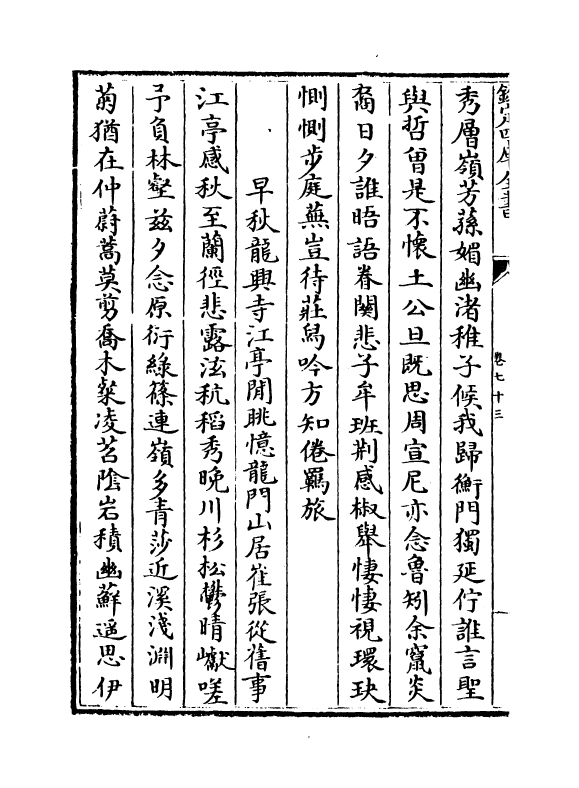 欽定四庫全書
卷七十三
秀層嶺芳蓀媚幽渚稚子候我歸衡門獨延佇誰言聖
與哲曾是不懷土公旦既思周宣尼亦念魯矧余竄炎
裔日夕誰晤語眷闕悲子牟班荆感椒舉悽悽視環玦
惻惻步庭蕪豈待莊舄吟方知倦羈旅
早秋龍興寺江亭閒眺憶龍門山居崔張從舊事
江亭感秋至蘭徑悲露泫秔稻秀晚川杉松鬱晴巘嗟
予負林壑兹夕念原衍綠篠連嶺多青莎近溪淺淵明
菊猶在仲蔚蒿莫剪喬木粲凌苕陰岩積幽蘚遥思伊